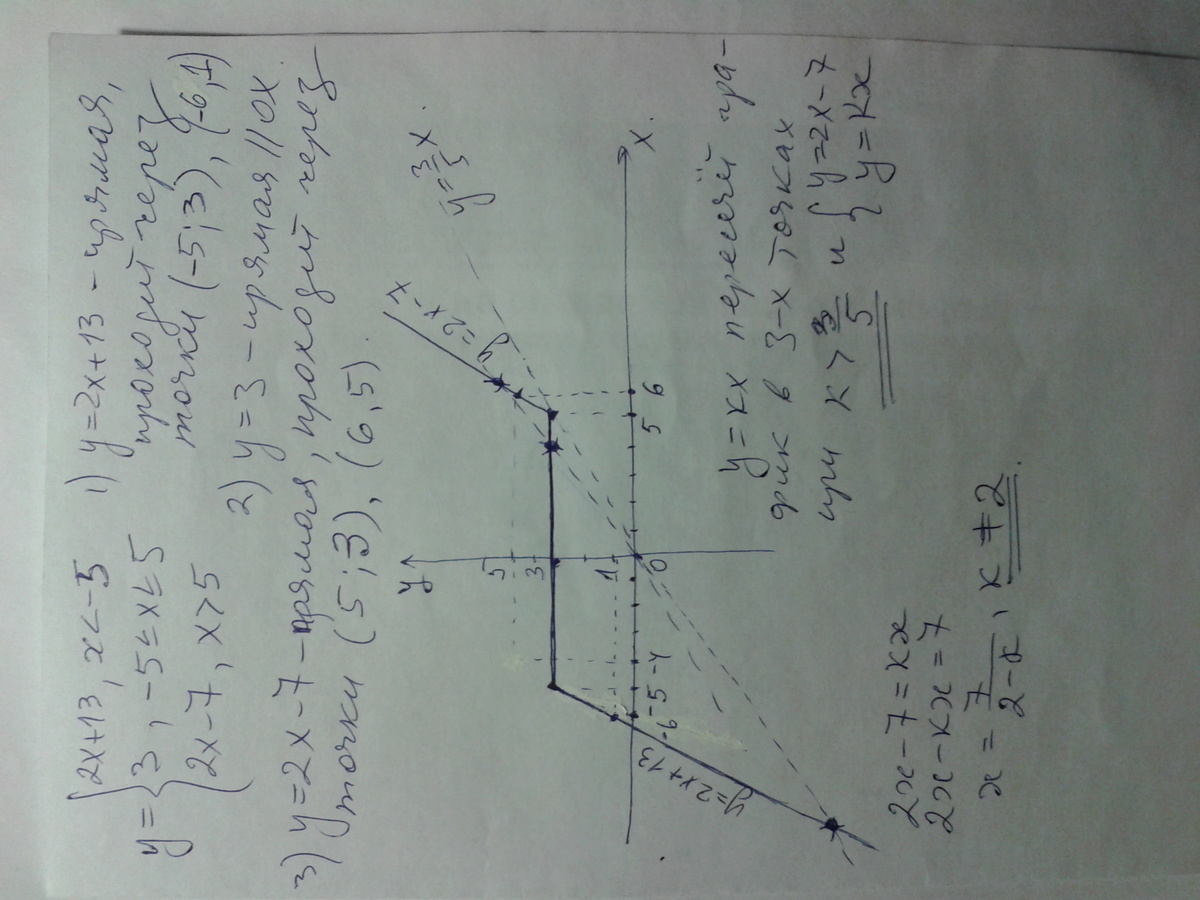 y = { 2x+13, x<-5
3, -5≤x≤5
2x-7, x>5
1) y=2x+13 - прямая,
проходит через
точки (-5;3), (-6,1)
2) y=3 - прямая // OX
3) y=2x-7 - прямая, проходит через
точки (5;3), (6,5).
y
5
3
1
0
-6 -5 -4
5 6
X.
y=2x+13
y=2x-7
y=3/5 x
y=kx пересечёт гра-
фик в 3-х точках
при k > 3/5 и { y=2x-7
y=kx
2x-7=kx
2x-kx=7
x = 7/(2-k), k≠2.